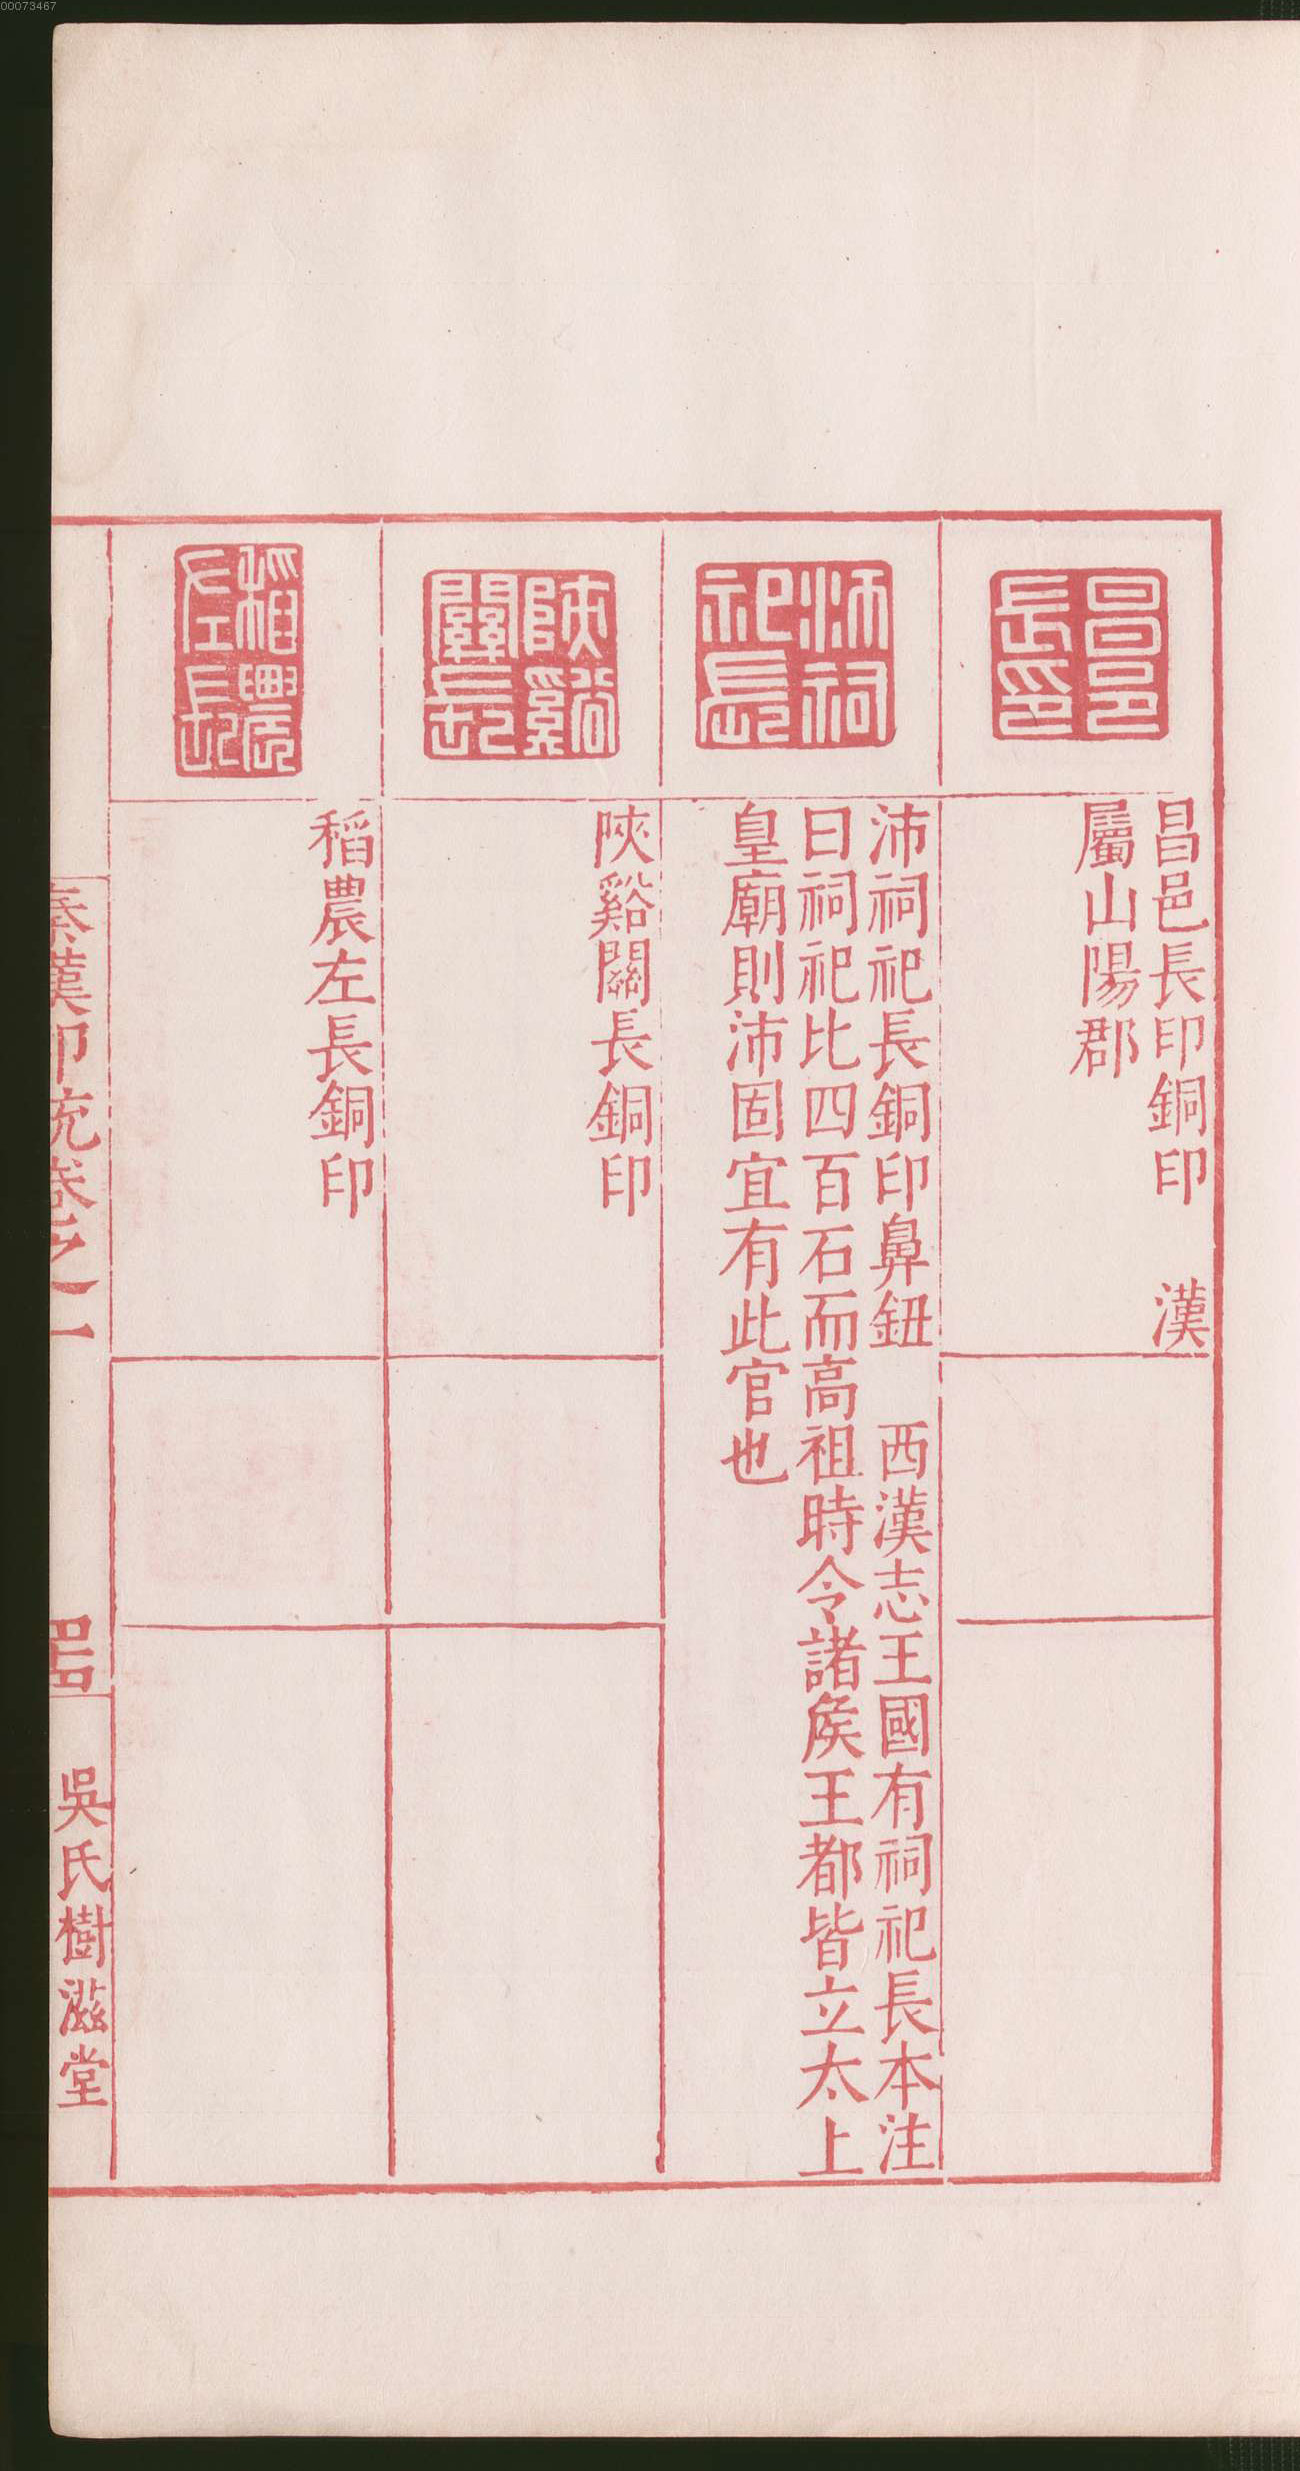 00073467
昌邑長印
昌邑長印銅印　漢
屬山陽郡
沛祠祀長
沛祠祀長銅印鼻鈕　西漢志王國有祠祀長本注
曰祠祀比四百石而高祖時令諸矦王都皆立太上
皇廟則沛固宜有此官也
陝谿關長
陝谿關長銅印
稻農左長
稻農左長銅印
秦漢印統卷之一
吳氏樹滋堂